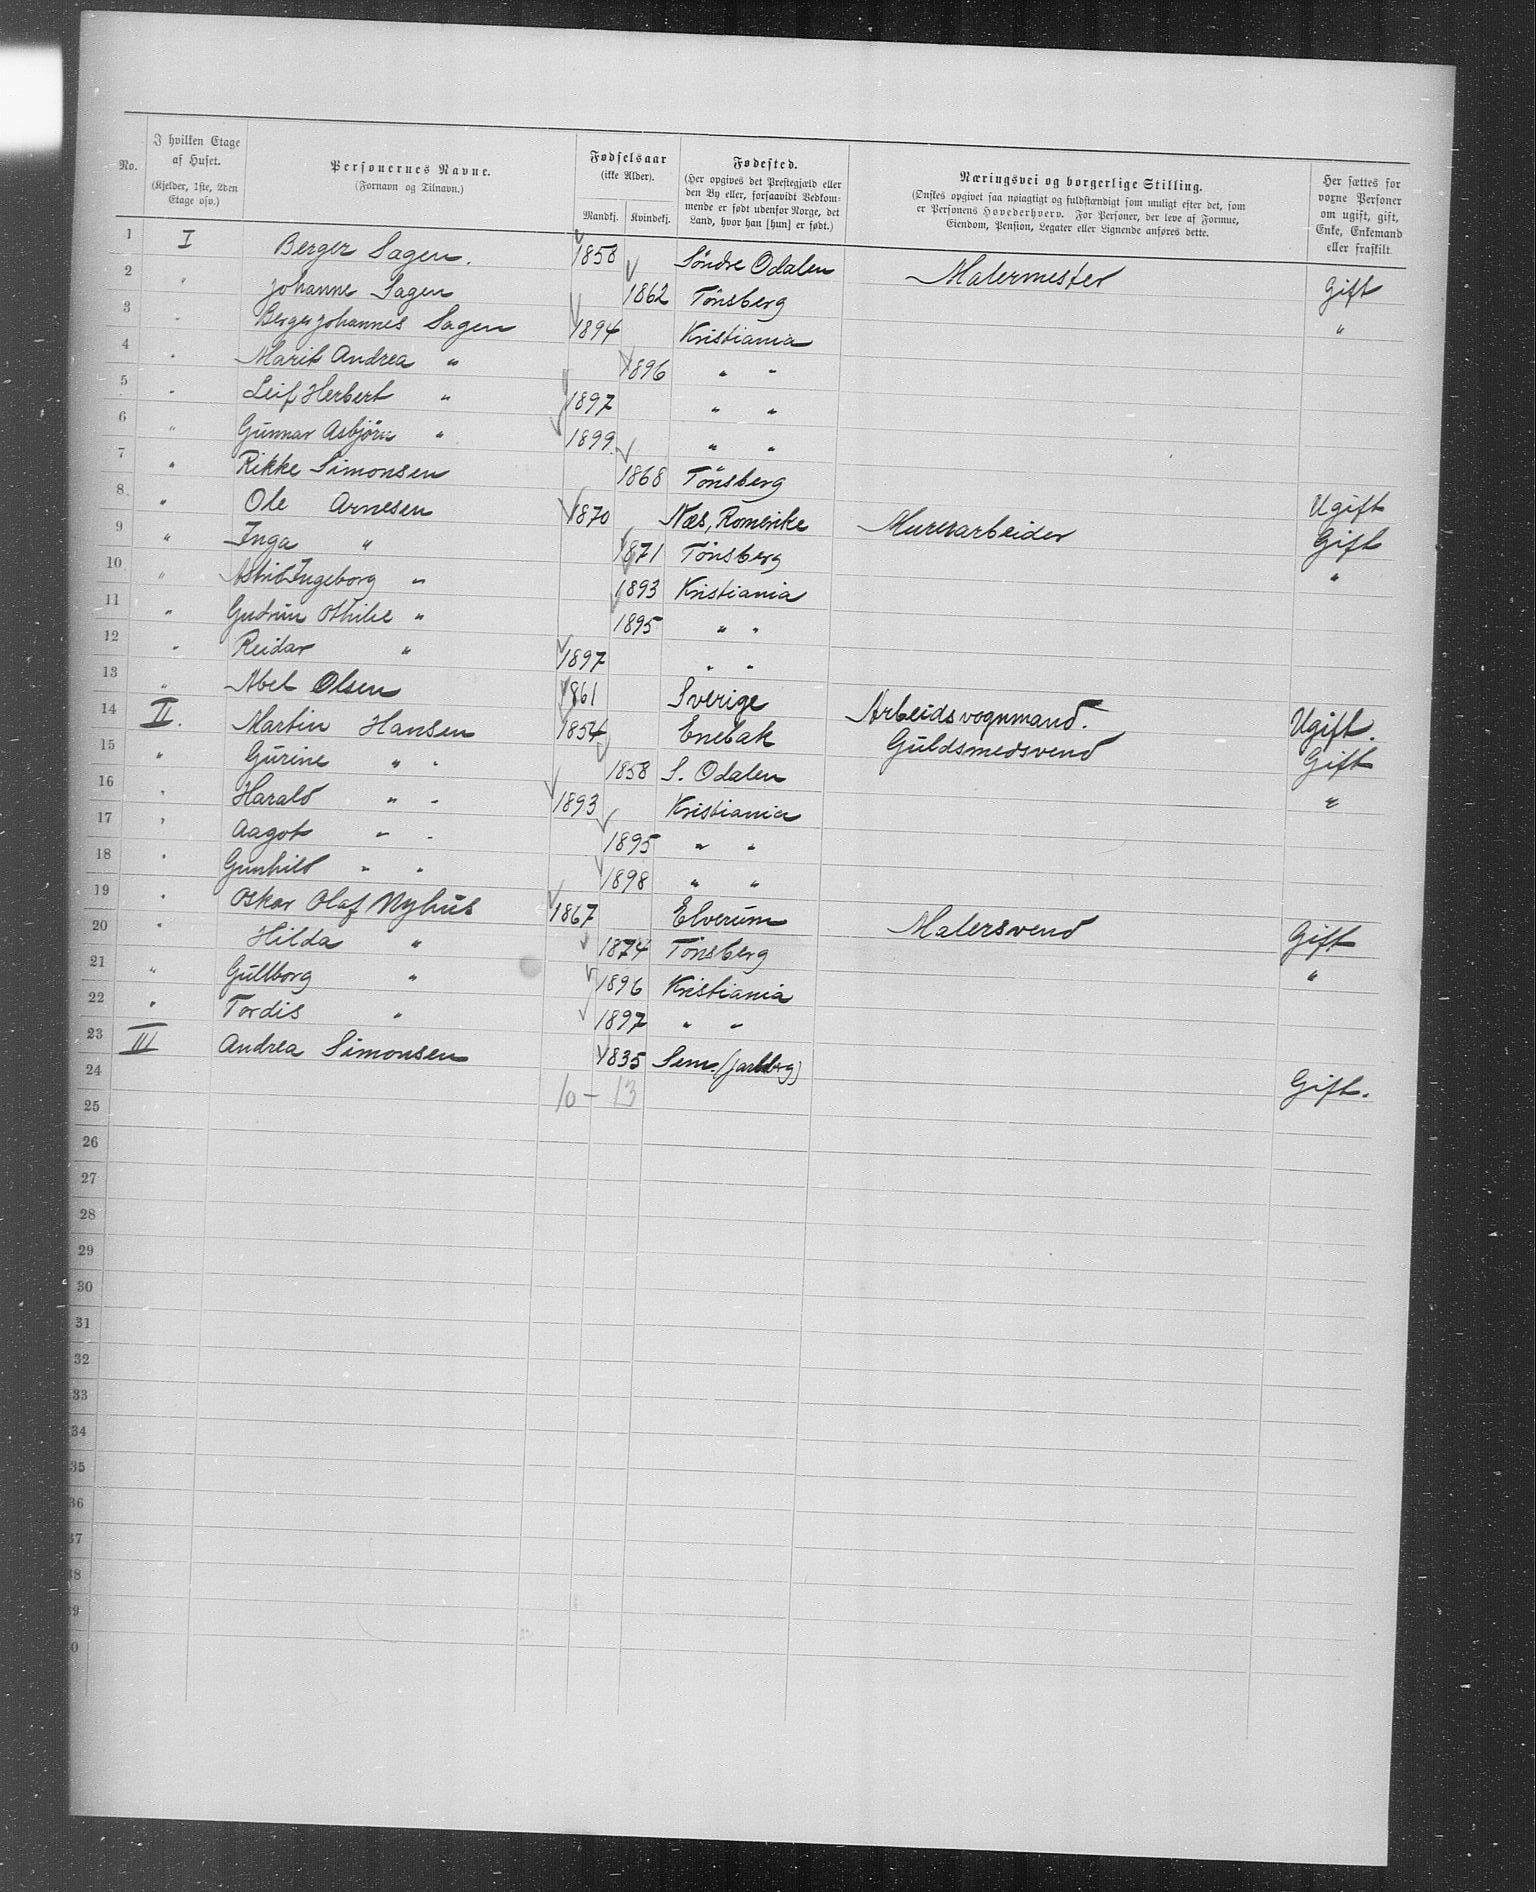 No. | I hvilken Etage af Huset. (Kjelder, 1ste, 2den Etage osv.) | Personernes Navne. (Fornavn og Tilnavn.) | Fødselsaar (ikke Alder). Mandkj. Kvindekj. | Fødested. (Her opgives det Prestegjæld eller den By eller, forsaavidt Vedkommende er født udenfor Norge, det Land, hvor han [hun] er født.) | Næringsvei og borgerlige Stilling. (Ønskes opgivet saa nøiagtigt og fuldstændigt som muligt efter det, som er Personens Hovederhverv. For Personer, der leve af Formue, Eiendom, Pension, Legater eller Lignende anføres dette. | Her sættes for voxne Personer om ugift, gift, Enke, Enkemand eller fraskilt.
1 I Berger Sagen. 1858 Söndre Odalen Malermester Gift
2 " Johanne Sagen 1862 Tönsberg "
3 " Berger Johannes Sagen 1894 Kristiania
4 " Marit Andrea " 1896 " "
5 " Leif Herbert " 1897 " "
6 " Gunnar Asbjörn " 1899 " "
7 " Rikke Simonsen 1868 Tönsberg Ugift
8 " Ole Arnesen 1870 Næs, Romerike Murerarbeider Gift
9 " Inga " 1871 Tönsberg "
10 " Astrid Ingeborg " 1893 Kristiania
11 " Gudrun Othilie " 1895 " "
12 " Reidar " 1897 " "
13 " Abel Olsen 1861 Sverige Arbeidsvognmand. Ugift.
14 II. Martin Hansen 1854 Enebak Guldsmedsvend Gift
15 " Gurine " " 1858 S. Odalen "
16 " Harald " " 1893 Kristiania
17 " Aagot " " 1895 " "
18 " Gunhild " " 1898 " "
19 " Oskar Olaf Nyhus 1867 Elverum Malersvend Gift
20 " Hilda " 1874 Tönsberg "
21 " Gullborg " 1896 Kristiania
22 " Tordis " 1897 " "
23 III Andrea Simonsen 1835 Sem. (Jarlsberg) Gift.
24 10 - 13
25
26
27
28
29
30
31
32
33
34
35
36
37
38
39
40